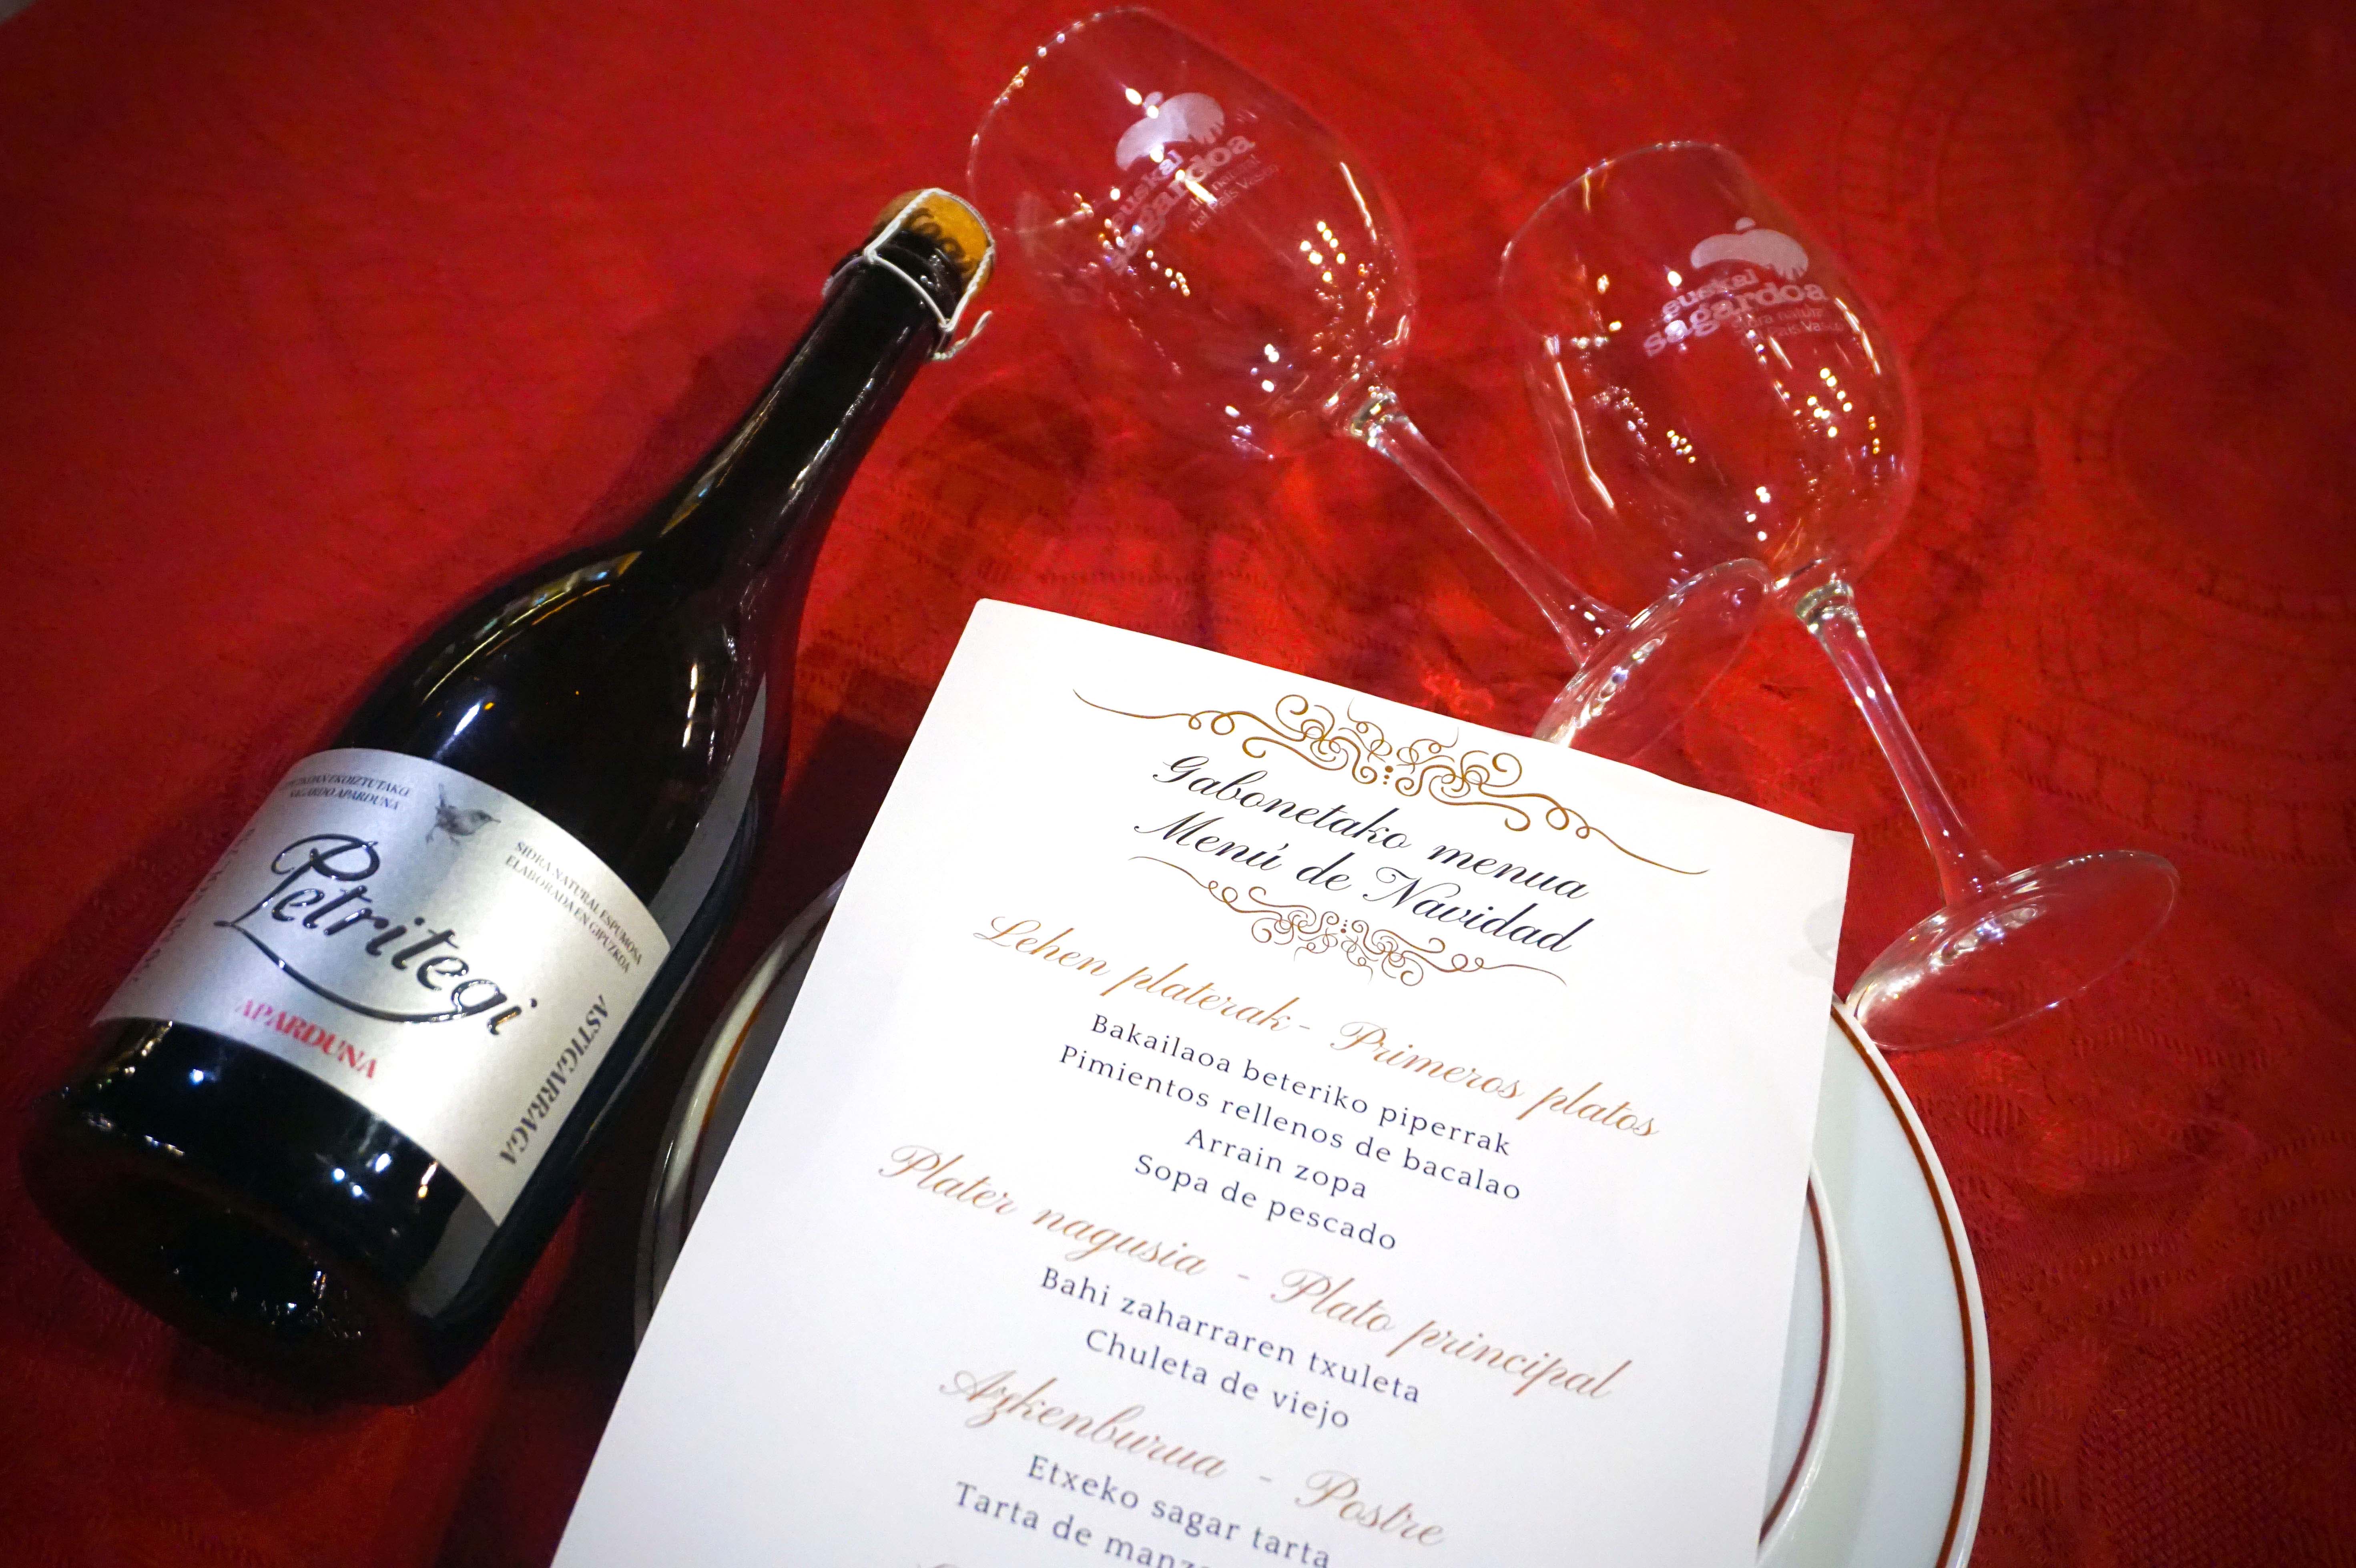 euskal
sagardoa
del País Vasco
euskal
sagardoa
EKOIZTUTAKO
SAGARDO APARDUNA
SIDRA NATURAL ESPUMOSA
ELABORADA EN GIPUZKOA
Petritegi
APARDUNA
ASTIGARRAGA
Gabonetako menua
Menú de Navidad
Lehen platerak - Primeros platos
Bakailaoa beteriko piperrak
Pimientos rellenos de bacalao
Arrain zopa
Sopa de pescado
Plater nagusia - Plato principal
Bahi zaharraren txuleta
Chuleta de viejo
Azkenburua - Postre
Etxeko sagar tarta
Tarta de